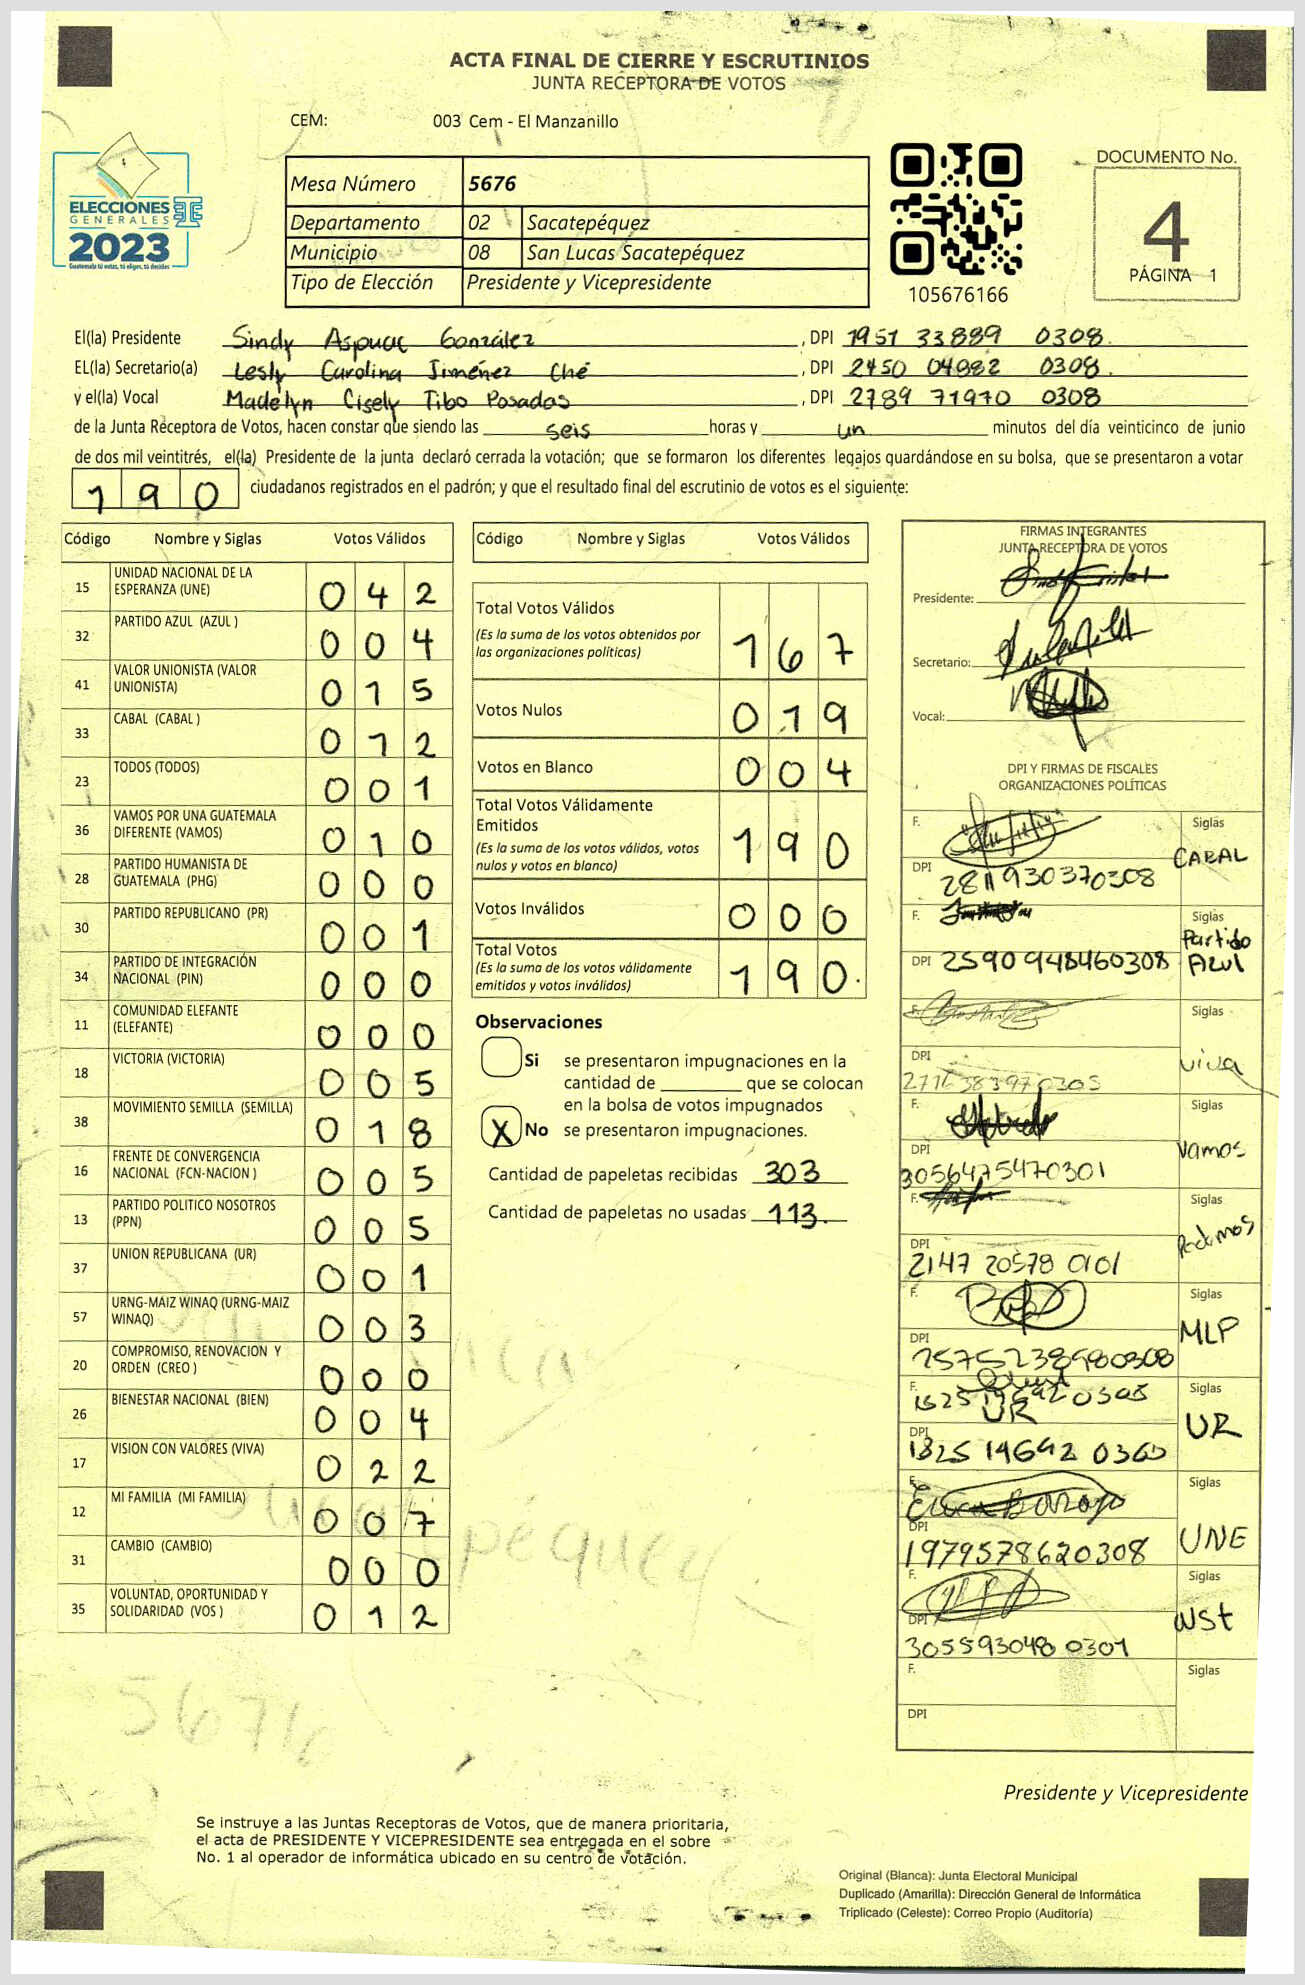 ACTA FINAL DE CIERRE Y ESCRUTINIOS
JUNTA RECEPTORA DE VOTOS
CEM: 003 Cem - El Manzanillo
ELECCIONES
GENERALES
2023
Guatemala tú votas, tú eliges, tú decides
Mesa Número 5676
Departamento 02 Sacatepéquez
Municipio 08 San Lucas Sacatepéquez
Tipo de Elección Presidente y Vicepresidente
105676166
DOCUMENTO No.
4
PÁGINA 1
El(la) Presidente Sindy Aspuac González , DPI 1951 33889 0308.
EL(la) Secretario(a) Lesly Carolina Jiménez Ché , DPI 2450 04882 0308.
y el(la) Vocal Madelyn Cisely Tibo Posadas , DPI 2789 71970 0308
de la Junta Receptora de Votos, hacen constar que siendo las seis horas y un minutos del día veinticinco de junio
de dos mil veintitrés, el(la) Presidente de la junta declaró cerrada la votación; que se formaron los diferentes legajos guardándose en su bolsa, que se presentaron a votar
190 ciudadanos registrados en el padrón; y que el resultado final del escrutinio de votos es el siguiente:
Código Nombre y Siglas Votos Válidos
15 UNIDAD NACIONAL DE LA ESPERANZA (UNE) 042
32 PARTIDO AZUL (AZUL ) 004
41 VALOR UNIONISTA (VALOR UNIONISTA) 015
33 CABAL (CABAL ) 012
23 TODOS (TODOS) 001
36 VAMOS POR UNA GUATEMALA DIFERENTE (VAMOS) 010
28 PARTIDO HUMANISTA DE GUATEMALA (PHG) 000
30 PARTIDO REPUBLICANO (PR) 001
34 PARTIDO DE INTEGRACIÓN NACIONAL (PIN) 000
11 COMUNIDAD ELEFANTE (ELEFANTE) 000
18 VICTORIA (VICTORIA) 005
38 MOVIMIENTO SEMILLA (SEMILLA) 018
16 FRENTE DE CONVERGENCIA NACIONAL (FCN-NACION ) 005
13 PARTIDO POLITICO NOSOTROS (PPN) 005
37 UNION REPUBLICANA (UR) 001
57 URNG-MAIZ WINAQ (URNG-MAIZ WINAQ) 003
20 COMPROMISO, RENOVACION Y ORDEN (CREO ) 000
26 BIENESTAR NACIONAL (BIEN) 004
17 VISION CON VALORES (VIVA) 022
12 MI FAMILIA (MI FAMILIA) 007
31 CAMBIO (CAMBIO) 000
35 VOLUNTAD, OPORTUNIDAD Y SOLIDARIDAD (VOS ) 012
5676
Código Nombre y Siglas Votos Válidos
Total Votos Válidos 167
(Es la suma de los votos obtenidos por
las organizaciones políticas)
Votos Nulos 019
Votos en Blanco 004
Total Votos Válidamente
Emitidos 190
(Es la suma de los votos válidos, votos
nulos y votos en blanco)
Votos Inválidos 000
Total Votos 190.
(Es la suma de los votos válidamente
emitidos y votos inválidos)
Observaciones
Si se presentaron impugnaciones en la
cantidad de ________ que se colocan
en la bolsa de votos impugnados
X No se presentaron impugnaciones.
Cantidad de papeletas recibidas 303
Cantidad de papeletas no usadas 113.
FIRMAS INTEGRANTES
JUNTA RECEPTORA DE VOTOS
Presidente:
Secretario:
Vocal:
DPI Y FIRMAS DE FISCALES
ORGANIZACIONES POLÍTICAS
F. Siglas
CABAL
DPI 2811930370308
F. Siglas
Partido
Azul
DPI 2590948460308
F. Siglas
viva
DPI
F. Siglas
Vamos
DPI
3056475470301
F. Siglas
Podemos
DPI
2147 20578 0101
F. Siglas
MLP
DPI
2575238980308
F. Siglas
UR
UR
DPI
F. Siglas
UNE
DPI
1979578620308
F. Siglas
DPI
3055930480301
F. Siglas
DPI
Presidente y Vicepresidente
Se instruye a las Juntas Receptoras de Votos, que de manera prioritaria,
el acta de PRESIDENTE Y VICEPRESIDENTE sea entregada en el sobre
No. 1 al operador de informática ubicado en su centro de votación.
Original (Blanca): Junta Electoral Municipal
Duplicado (Amarilla): Dirección General de Informática
Triplicado (Celeste): Correo Propio (Auditoría)